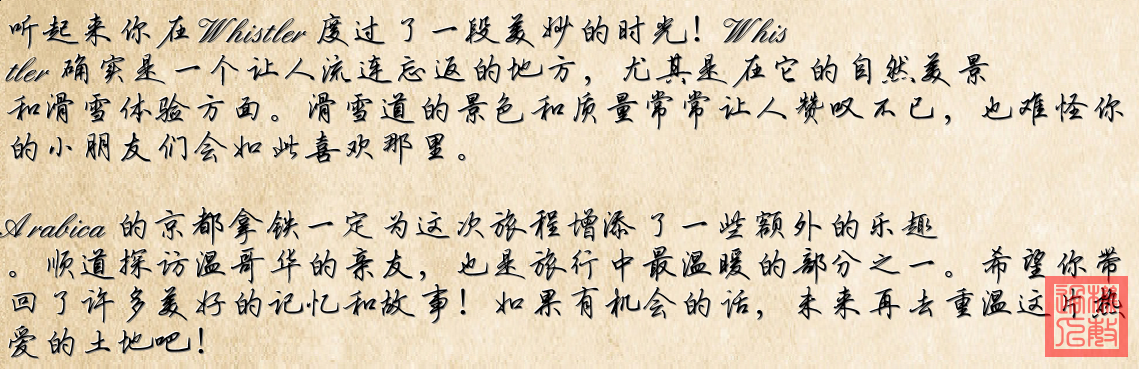 听起来你在Whistler 度过了一段美妙的时光！Whis
tler 确实是一个让人流连忘返的地方，尤其是在它的自然美景
和滑雪体验方面。滑雪道的景色和质量常常让人赞叹不已，也难怪你
的小朋友们会如此喜欢那里。

Arabica 的京都拿铁一定为这次旅程增添了一些额外的乐趣
。顺道探访温哥华的亲友，也是旅行中最温暖的部分之一。希望你带
回了许多美好的记忆和故事！如果有机会的话，未来再去重温这片热
爱的土地吧！